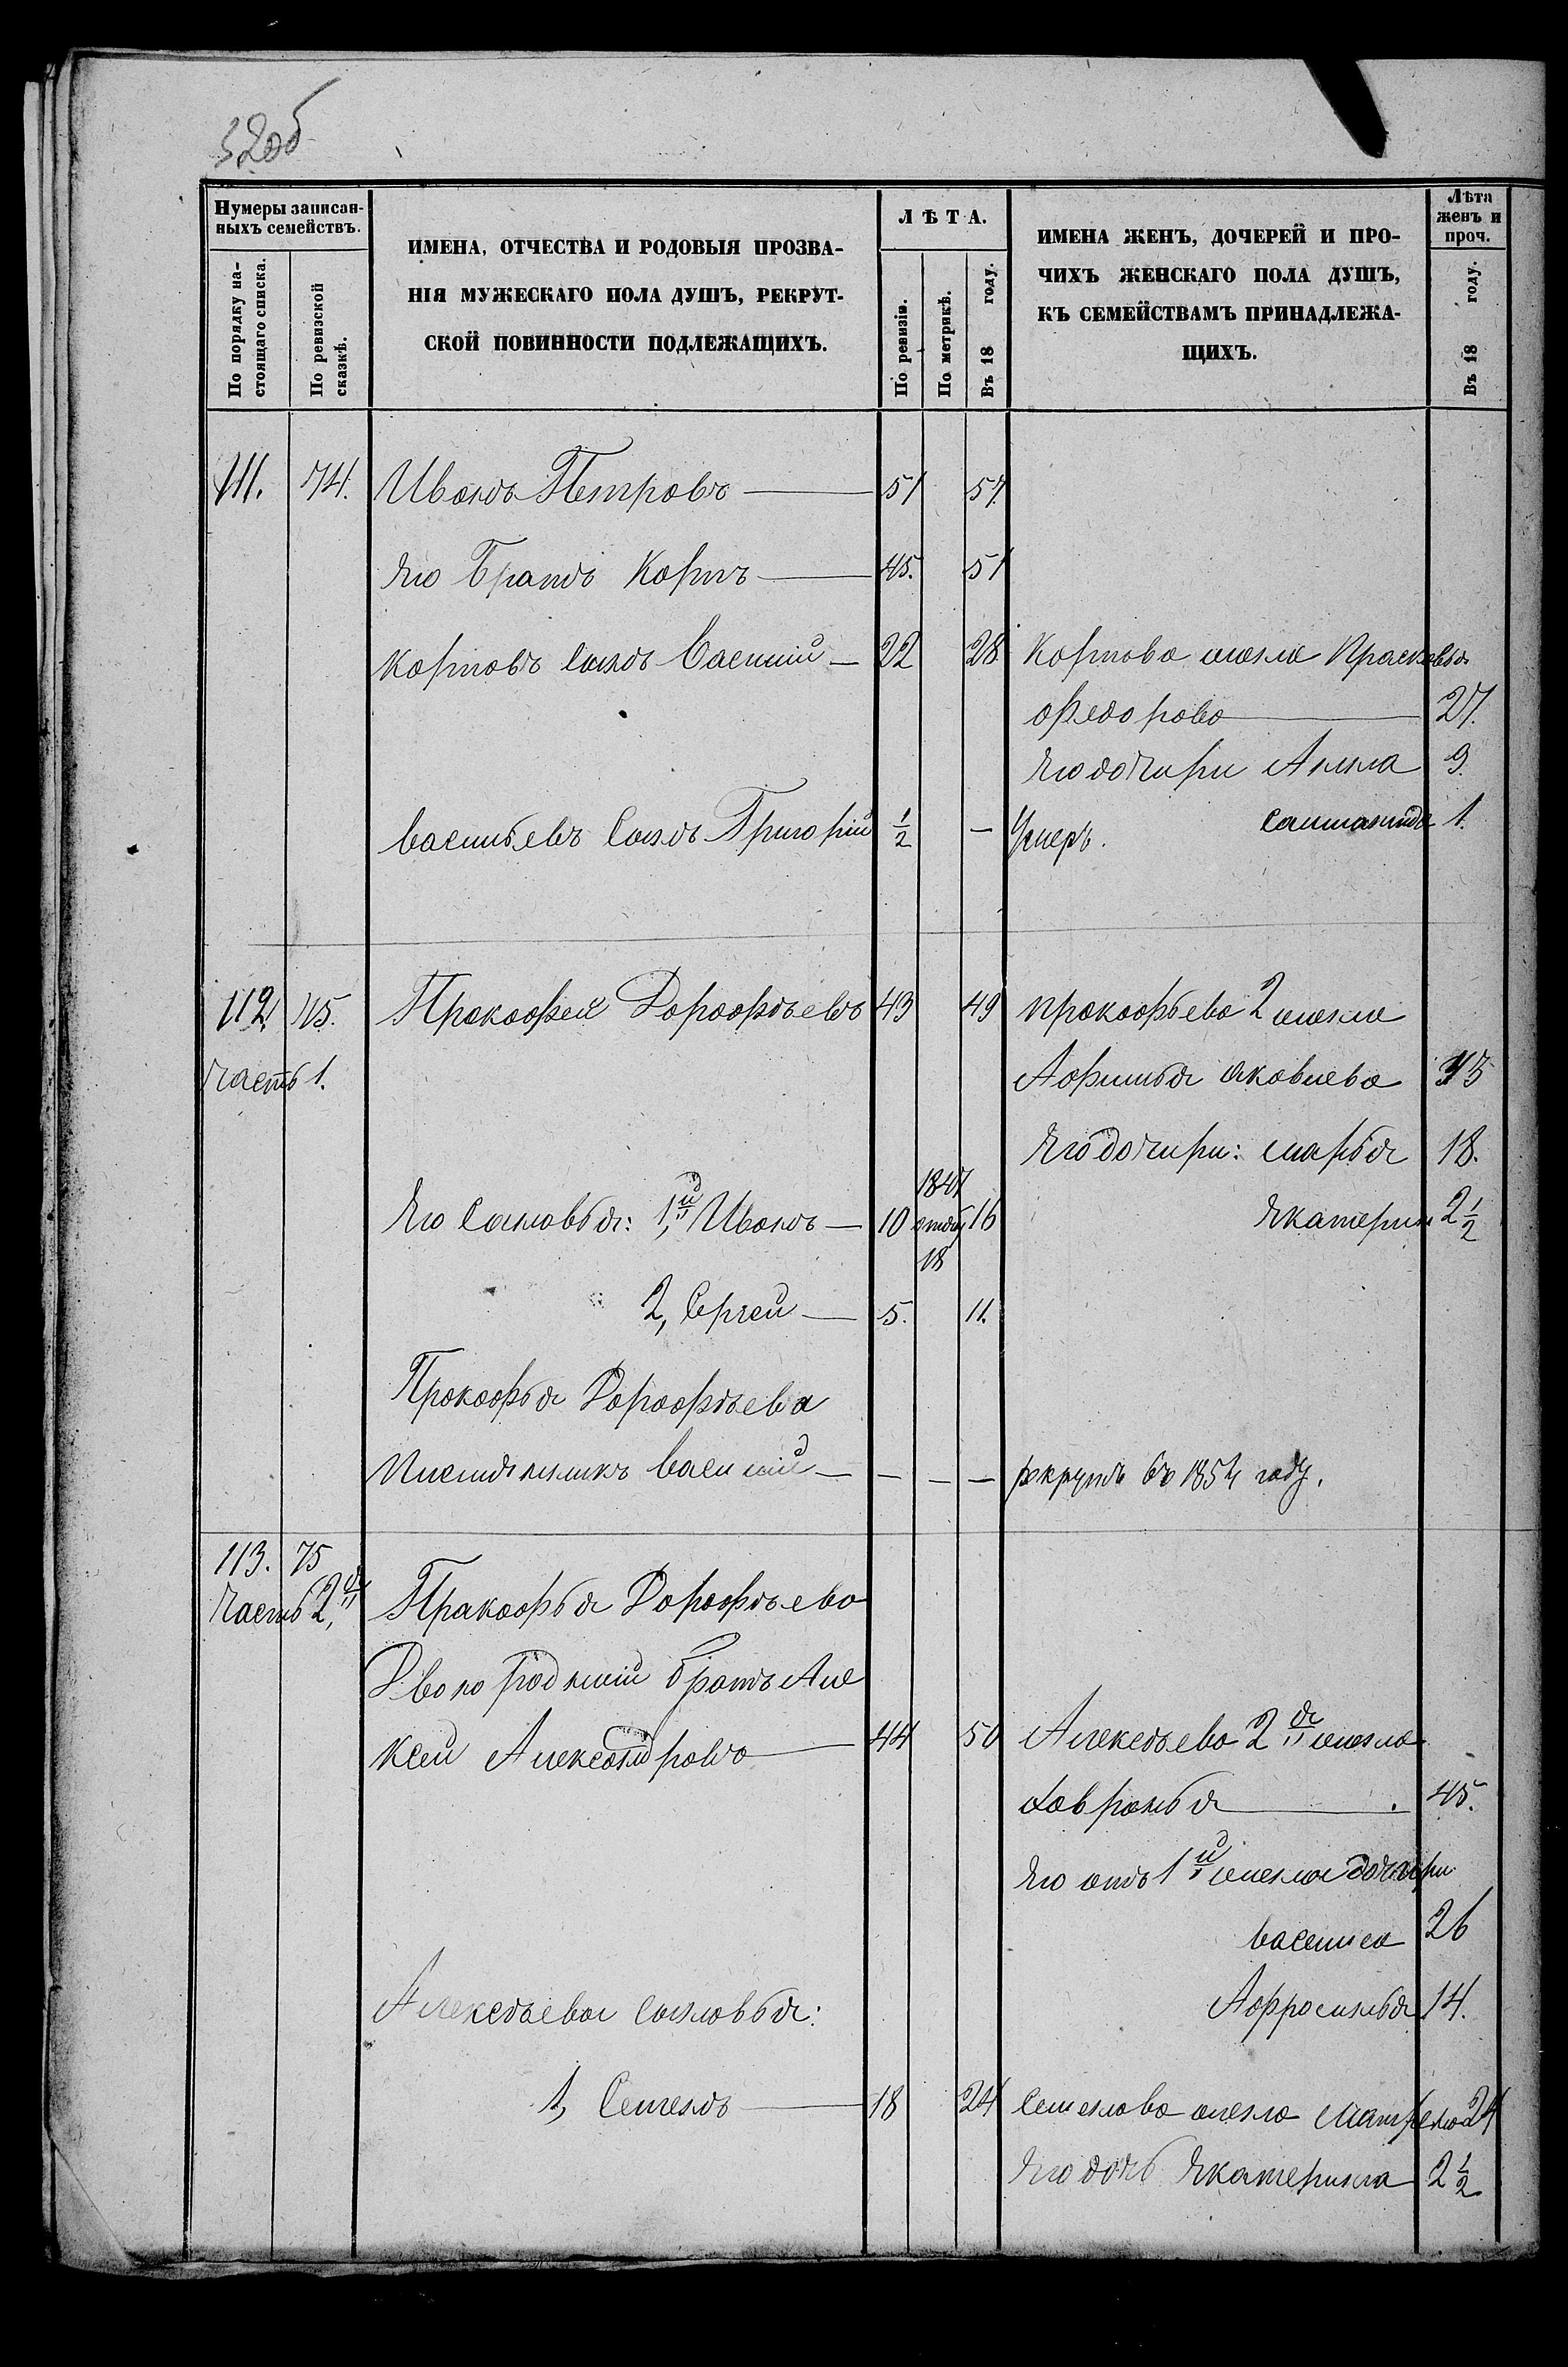 32об
Нумеры записан-
ныхъ семействъ.
По порядку на-
стоящаго списка.
По ревизской
сказкѣ.
ИМЕНА, ОТЧЕСТВА И РОДОВЫЯ ПРОЗВА-
НІЯ МУЖЕСКАГО ПОЛА ДУШЪ, РЕКРУТ-
СКОЙ ПОВИННОСТИ ПОДЛЕЖАЩИХЪ.
ЛѢТА.
По ревизіи.
По метрикѣ.
Въ 18 году.
ИМЕНА ЖЕНЪ, ДОЧЕРЕЙ И ПРО-
ЧИХЪ ЖЕНСКАГО ПОЛА ДУШЪ,
КЪ СЕМЕЙСТВАМЪ ПРИНАДЛЕЖА-
ЩИХЪ.
Лѣта
женъ и
проч.
Въ 18 году.
111. 74. Иванъ Петровъ 51 57
Его Братъ Карпъ 45. 51
Карповъ Сынъ Василий 22 28 Карпова жена Прасковья
Федорова 27.
Его дочири Анна 9.
Васильевъ Сынъ Григорий 1/2 — Умеръ. 1.
112 75. Прокофей Дорофѣевъ 43 49 Прокофьева 2 жена
часть 1. Яковлева
Его дочири: марья 18.
1847
Его Сыновья: 1,й Иванъ 10 16 Екатерина 2 1/2
18
2, Сергей 5. 11.
Прокофья Дорофѣева
племянникъ Василий — — — рекрутъ въ 1854 году.
113. 75
Часть 2,я Пракофья Дорофѣева
Двоюродный братъ Але
ксей Александровъ 44 50 Алексѣева 2я жена
Хавронья 45.
Его отъ 1й жены дочири
Василиса 26
Алексѣева сыновья: Афросинья 14.
1, Семенъ 18 24 Семенова жена Матрена 24
Его дочь Екатерина 2 1/2